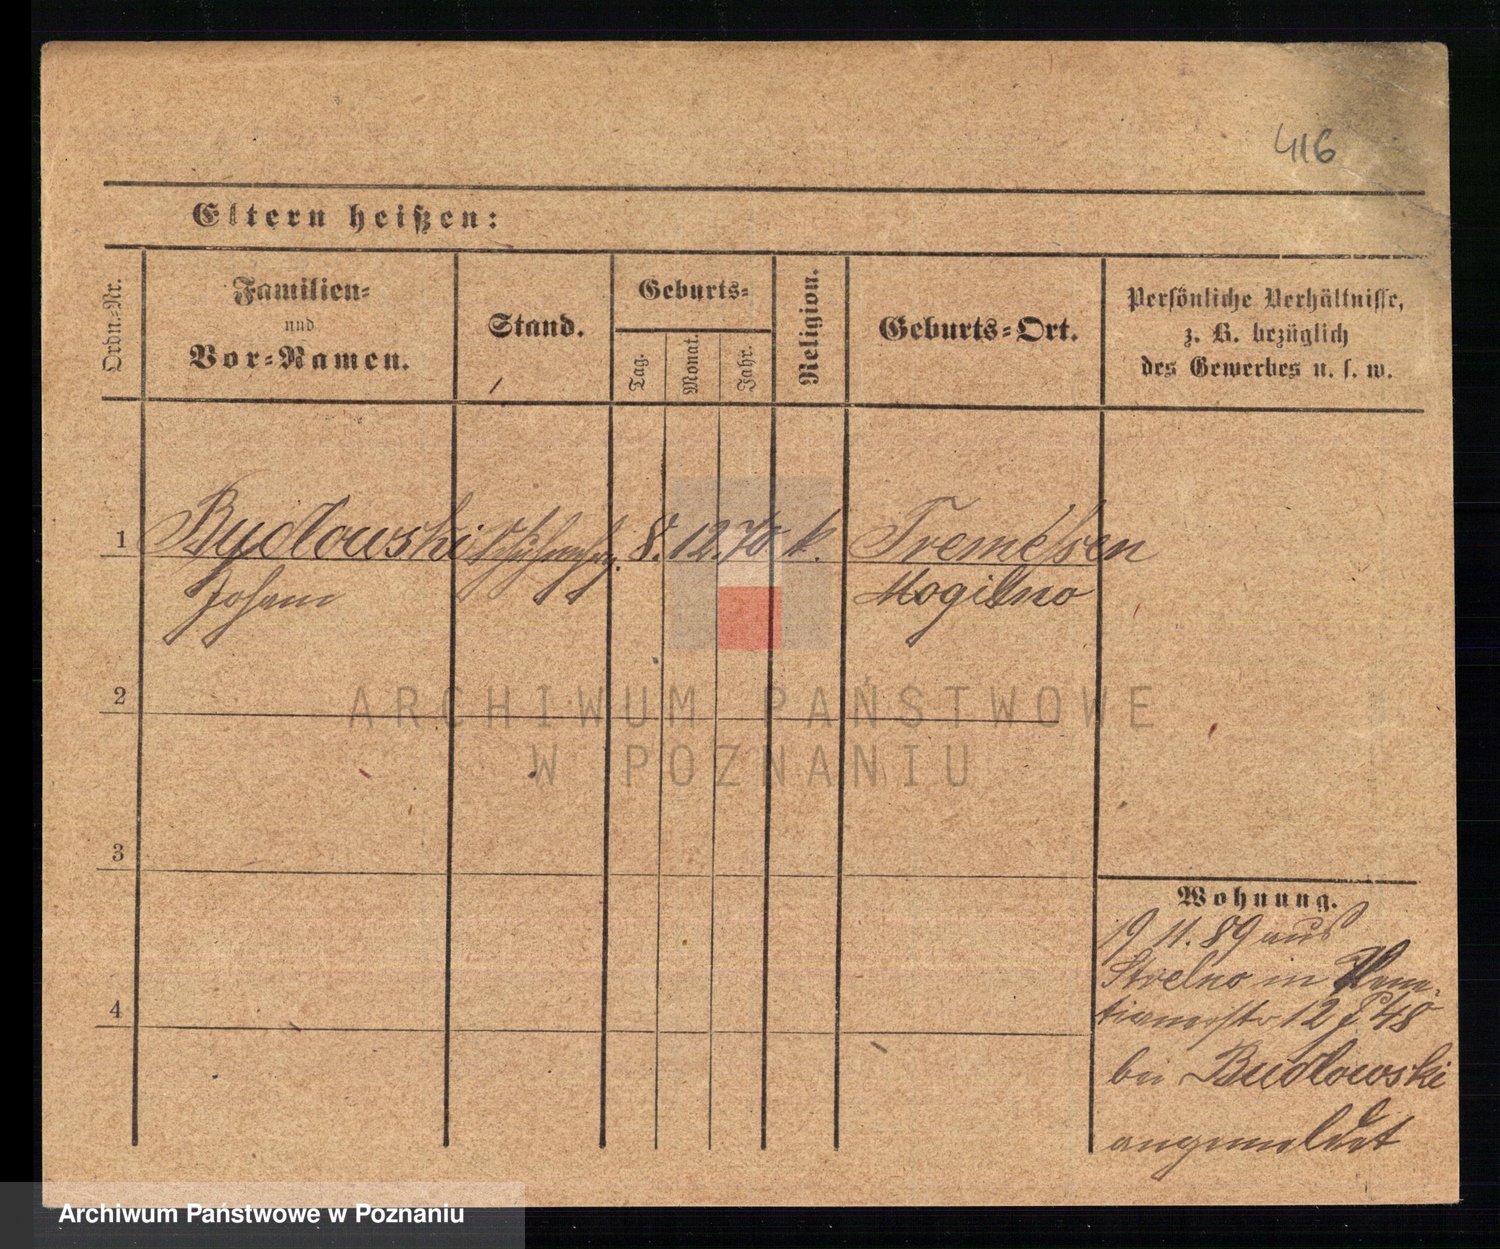 416
Eltern heißen:
Ordn.-Nr.
Familien-
und
Vor-Namen.
Stand.
Geburts-
Tag.
Monat.
Jahr.
Religion.
Geburts-Ort.
Persönliche Verhältnisse,
z. B. bezüglich
des Gewerbes u. s. w.
1 Budlowski 8. 12. 70 k. Tremessen
Johann Mogilno
2
ARCHIWUM PAŃSTWOWE
W POZNANIU
3
4
Wohnung.
19 11. 89 aus
Strelno in
12 48
bei Budlowski
angemeldet
Archiwum Państwowe w Poznaniu